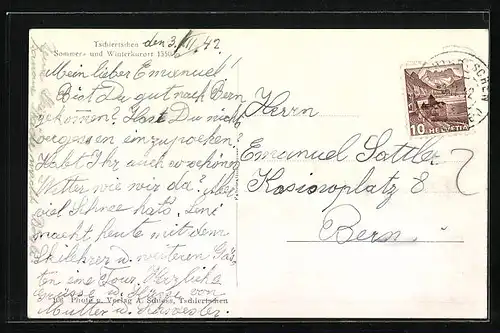 Tschiertschen den 3. III. 42
Sommer- und Winterkurort 1350
Mein lieber Emanuel!
Bist Du gut nach Bern
gekommen? Hast Du nicht
vergessen einzupacken?
Habt Ihr auch so schönes
Wetter wie wir da? Aber
viel Schnee hats. Leni
macht heute mit dem
Skilehrer u. weiteren Gäs-
ten eine Tour. Herzliche
Grüsse u. Küsse von
Mutter u. Schwester.
Photo u. Verlag A. Schloss, Tschiertschen
10
HELVETIA
Herrn
Emanuel Sattler
Kasinoplatz 8
Bern